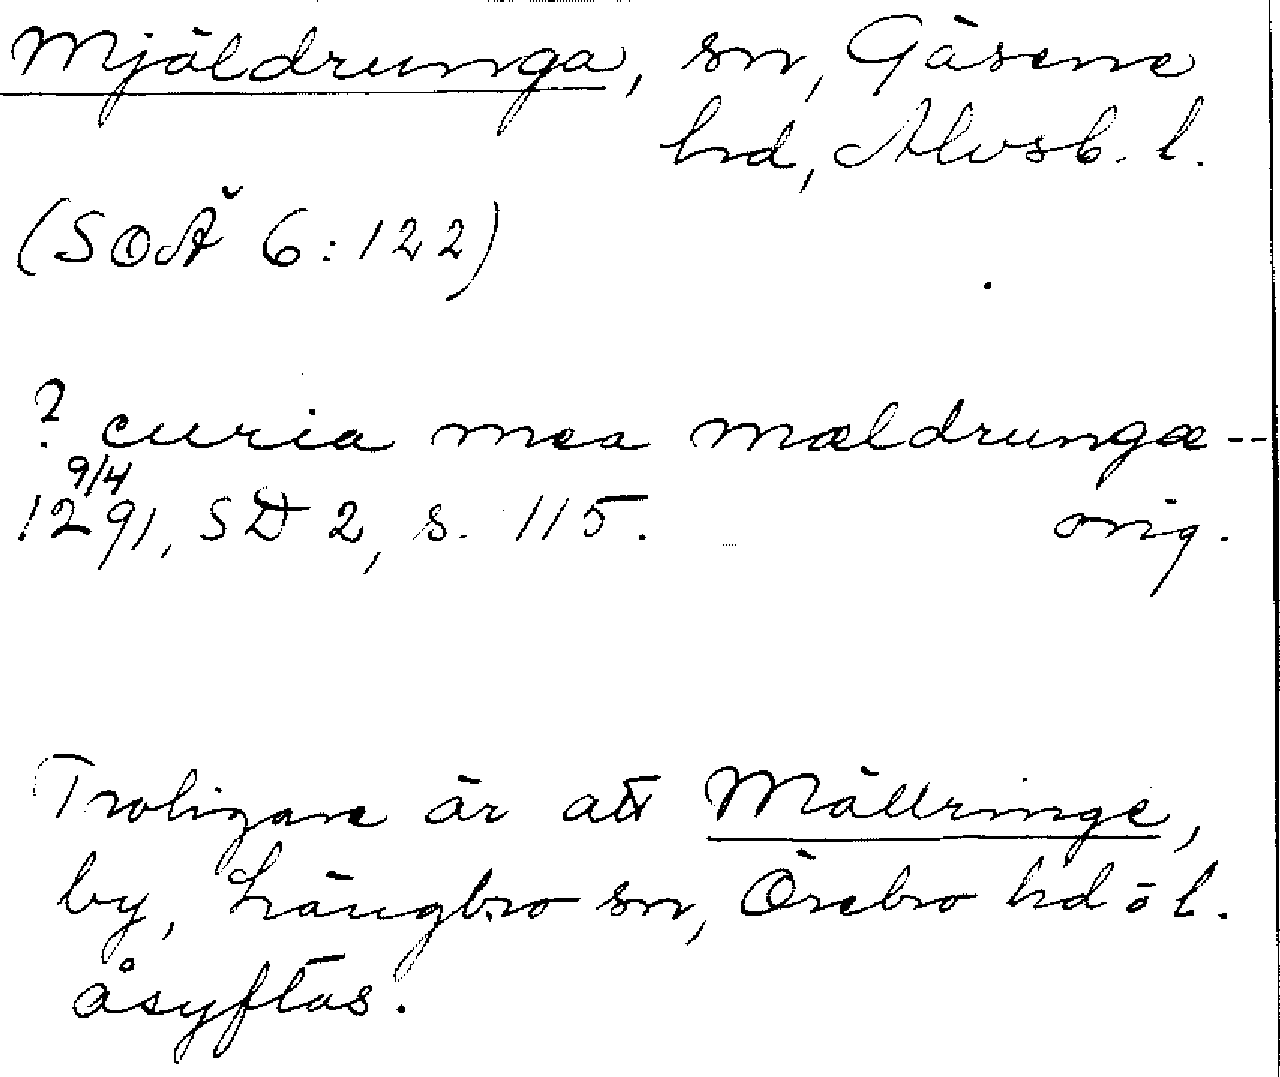 Mjäldrunga, sn, Gäsene
hd, Älvsb. l.
(SOÄ 6:122)
? curia mea mældrungæ --
9/4
1291, SD 2, s. 115. orig.
Troligare är att Mällringe,
by, Längbro sn, Örebro hd o l.
åsyftas.